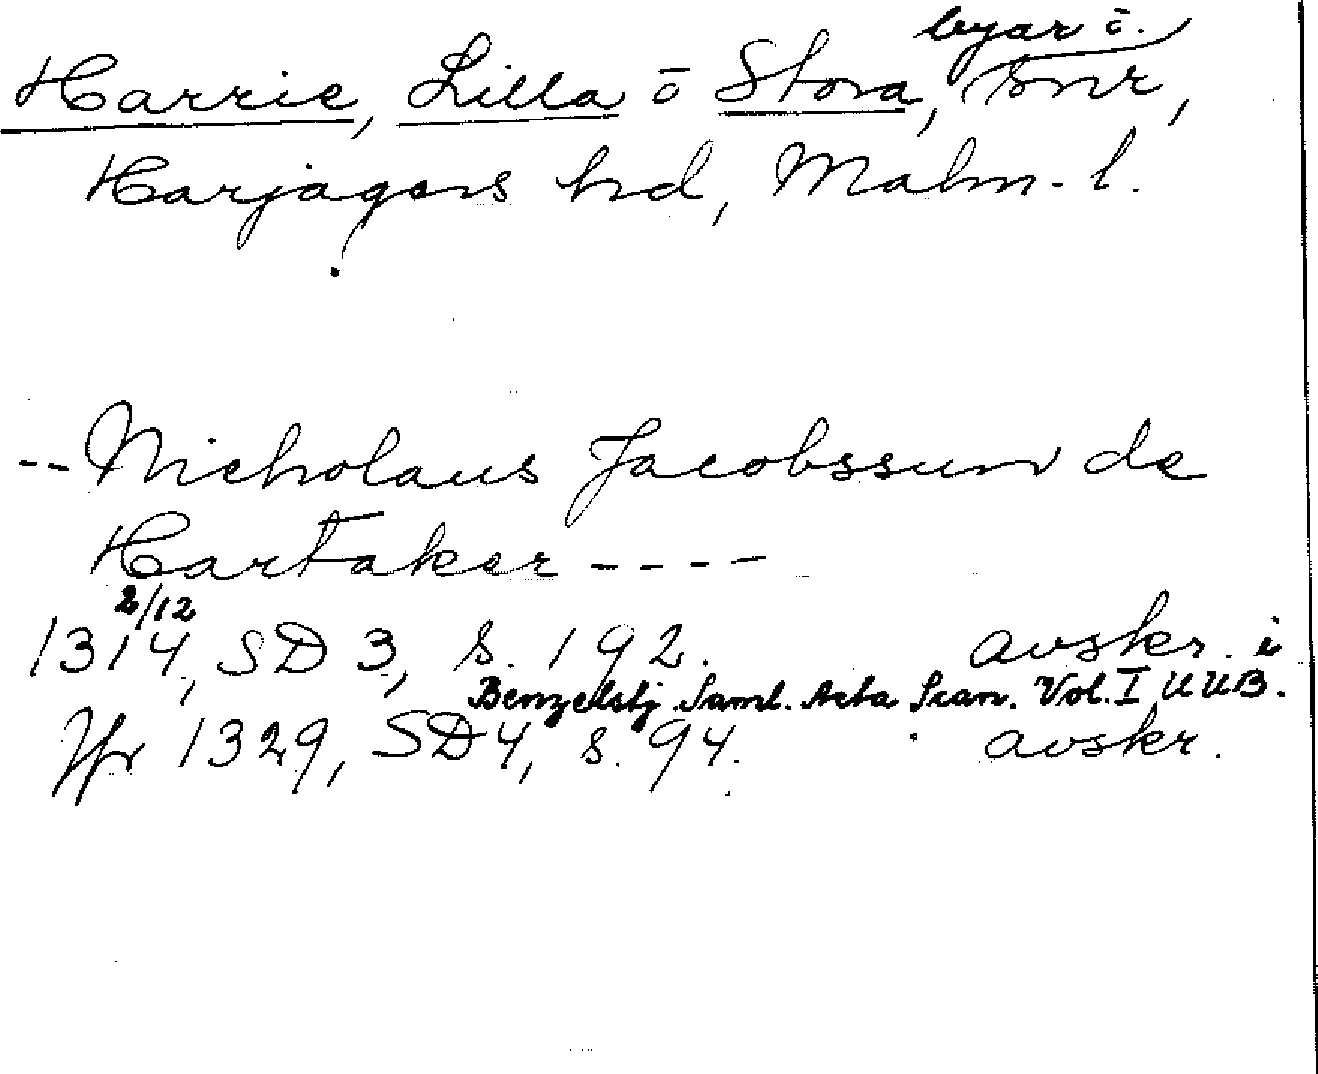 Harrie, Lilla o Stora, byar o. snr,
Harjagers hd, Malm-l.
-- Nicholaus Jacobssun de
Hartaker ----
1314 2/12, SD 3, s. 192. avskr. i
Benzelstj. Saml. Acta Scan. Vol. I UUB.
Jfr 1329, SD 4, s. 94. avskr.